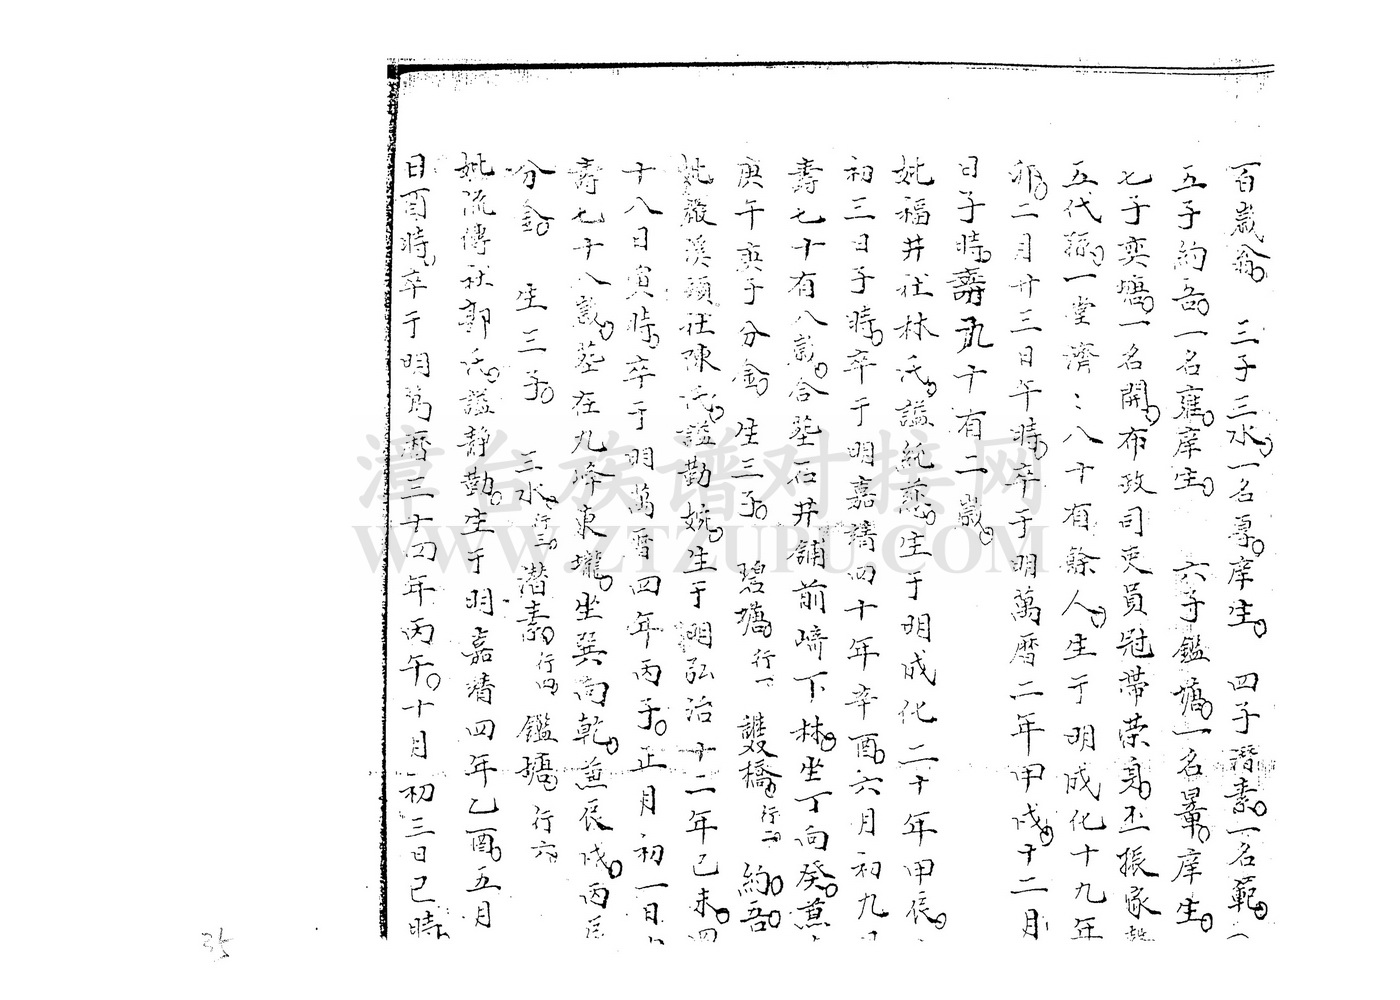 百歲翁 三子三水一名專庠生 四子潛素一名範
五子約吾一名雍庠生 六子鑑塘一名暈庠生
七子奕塘一名開布政司吏員冠帶榮身丕振家
五代孫一堂濟：八十有餘人生于明成化十九年
卯二月廿三日午時卒于明萬曆二年甲戌十二月
日子時壽九十有二歲
妣福井社林氏謚純慈生于明成化二十年甲辰
初三日子時卒于明嘉靖四十年辛酉六月初九
壽七十有八歲合墓石井舖前崎下林坐丁向癸兼
庚午庚子分金 生三子 碧塘行一 雙橋行二 約吾
妣嚴溪頭社陳氏謚勤婉生于明弘治十二年己未四
十八日寅時卒于明萬曆四年丙子正月初一日
壽七十八歲墓在九降東壠坐巽向乾兼辰戌丙辰
分金 生三子 三水行三 潛素行四 鑑塘行六
妣流傳社郭氏謚靜勤生于明嘉靖四年乙酉五月
日酉時卒于明萬曆三十四年丙午十月初三日巳時
漳台族谱对接网
WWW.ZTZUPU.COM
35